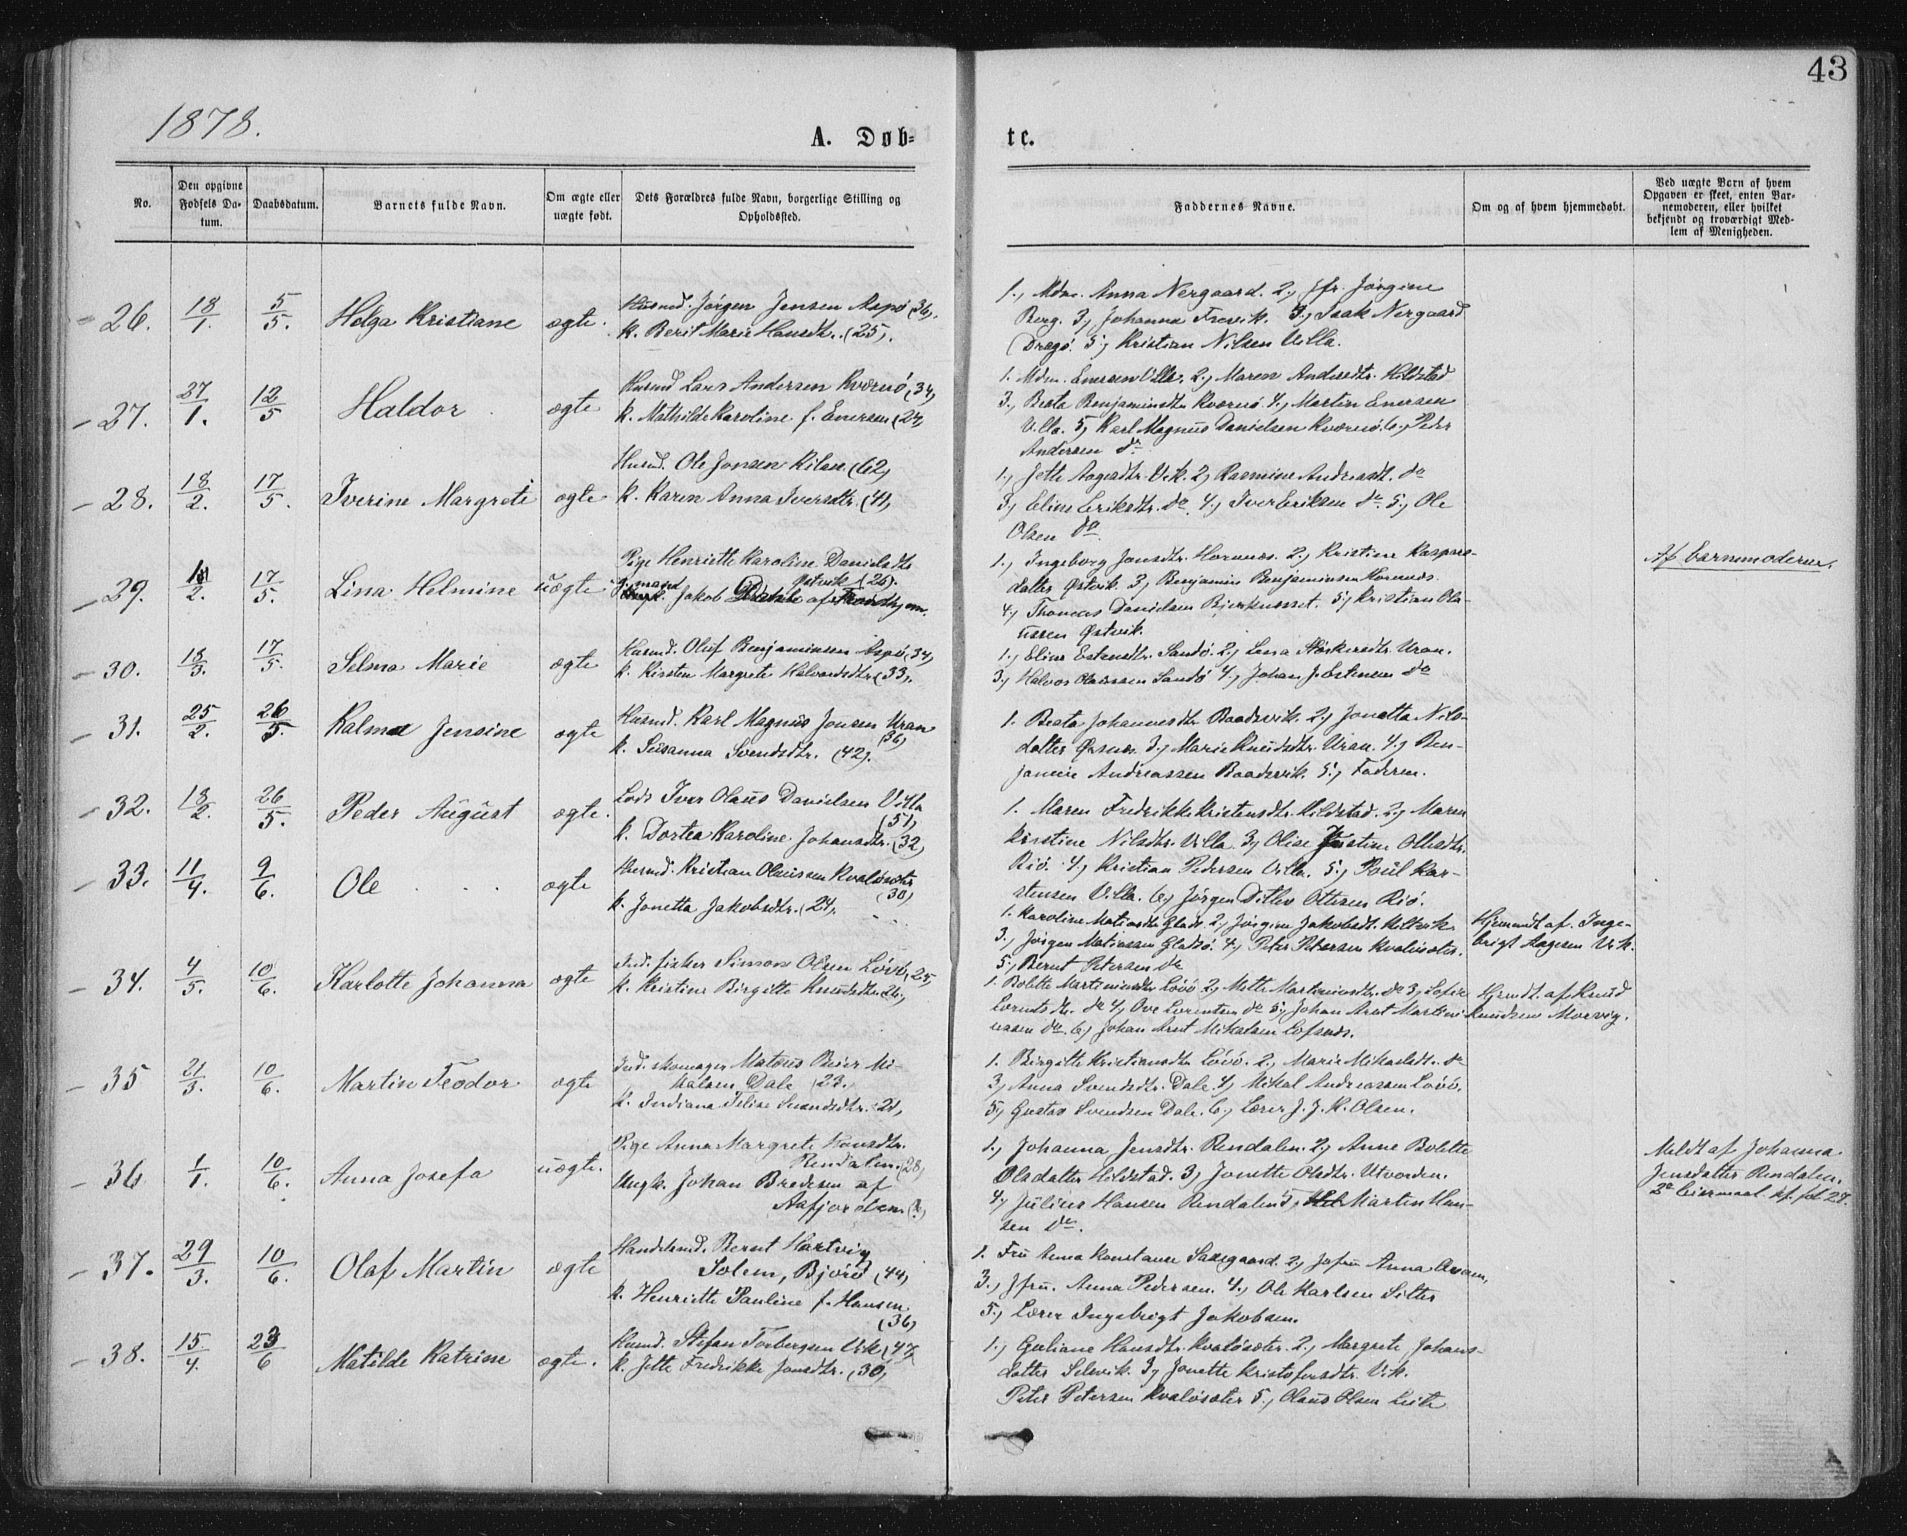 43
1878.
A. Døb-
te.
No.
Den opgivne Fødsels Da-tum.
Daabsdatum.
Barnets fulde Navn.
Om ægte eller uægte født.
Dets Forældres fulde Navn, borgerlige Stilling og Opholdssted.
Faddernes Navne.
Om og af hvem hjemmedøbt.
Ved uægte Barn af hvem Opgaven er skeet, enten Bar-nemoderen, eller hvilket bekjendt og troværdigt Med-lem af Menigheden.
26. 18/1. 5/5. Helga Kristiane ægte.
Husmd. Jørgen Jensen Aspø (36).
k. Berit Marie Hansdtr. (25).
1., Mdm. Anna Nergaard. 2., Jfr. Jørgine
Berg. 3, Johanna Frevik. 3., Isak Nergaard
Dragø. 5, Kristian Nilsen Villa.
27. 27/1. 12/5 Haldor ægte
Husmd Lars Andersen Kværnø (34)
k. Mathilde Karoline f. Enersen (27)
1. Mdm. Enersen Villa. 2, Maren Andersdtr. Hildstad
3, Beata Benjaminsdtr Kværnø. 4, Martin Enersen
Villa. 5, Karl Magnus Danielsen Kværnø. 6, Peder
Andersen do
28. 18/2. 17/5. Iverine Margrete ægte
Husmd. Ole Jonsen (62)
k. Karen Anna Iversdtr. (41)
1., Jette Aagesdtr. Vik. 2, Rasmine Andreasdt. do
3, Eline Eriksdtr. do. 4, Iver Eriksen do. 5, Ole
Olsen do
29. 2. 17/5. Lina Helmine uægte
Pige Henriette Karoline Danielsdtr
Østvik (26).
Jakob af Trondhjem.
1., Ingeborg Jonsdtr. Hornnæs. 2, Kristine Kaspars-
datter Østvik 3, Benjamin Benjaminsen Hornnæs.
4, Thomas Danielsen 5, Kristian Ola-
ussen Østvik.
Af barnemoderen.
30. 18/3. 17/5. Selma Marie ægte
Husmd. Oluf Benjaminsen Aspø (34)
k. Kirsten Margrete Halvorsdtr (33).
1, Eline Estensdtr. Sandø. 2, Lena Uran.
3, Halvor Olaussen Sandø 4, Johan J. Estensen do
31. 25/2. 26/5. Kalma Jensine ægte
Husmd. Karl Magnus Jonsen Uran
(36)
k. Susanna Svendsdtr. (42).
1. Beata Johannesdtr. Baadsvik. 2, Jonetta Nils-
datter 3, Marie Knudsdtr. Uran. 4, Ben-
jamin Andreassen Baadsvik. 5, Faderen.
32. 18/2. 26/5. Peder August ægte.
Lods Iver Olaus Danielsen Villa
(51)
k. Dortea Karoline Johansdtr. (32)
1. Maren Fredrikke Kristensdtr. Hildstad. 2, Maren
Kirstine Nilsdtr. Villa. 3, Olise Justine Ottesdtr.
Riø. 4, Kristian Pedersen Villa. 5, Poul Kar-
stensen Villa. 6, Jørgen Ditlev Ottesen Riø.
33. 11/4. 9/6. Ole ægte
Husmd. Kristian Olaussen Kvaløsæter
(30)
k. Jonetta Jakobsdtr. (24)
1. Karoline Matiasdtr Gladsø 2, Jørgine Jakobsdt.
3, Jørgen Matiassen Gladsø 4, Peter Petersen Kvaløsæter.
5, Bernt Petersen do
Hjemmdt af Inge-
brigt Aagesen Vik.
34. 4/5. 10/6. Karlotte Johanna ægte
Ind. fisker Simon Olsen Løvø (25)
k. Kristine Birgitte Knudsdtr. 26.
1. Bolette Martiniusdtr Løvø 2, Mette Martiniusdtr. do 3, Sofie
Lorntsdtr. do 4, Ove Lorentsen do 5, Johan Arnt Martini-
ussen do. 6, Johan Arnt Mikalsen Lofsnes.
Hjemdt. af Knud
Knudsen Morvig.
35 21/3. 10/6. Martin Teodor ægte
Ind. skomager Matæus Beier Mi-
kalsen Dale (23.)
k. Indiana Feline Svendsdtr. 21,
1. Birgitte Kristiansdtr Løvø. 2, Marie Mikalsdt. do
3, Anna Svendsdtr. Dale. 4, Mikal Andreassen Løvø.
5, Gustav Svendsen Dale. 6, Lærer J. J. K. Olsen.
36 1/1. 10/6. Anna Josefa uægte.
Pige Anna Margrete Hansdtr.
Rendalen. (28)
Ungk. Johan Bredesen af
Aafjorden
1., Johanna Jensdtr. Rendalen. 2, Anne Bolette
Olsdatter Hildstad. 3, Jonette Olsdtr. Utvorden.
4, Julius Hansen Rendalen 5, Martin Han-
sen do.
Meldt af Johanna
Jensdatter Rendalen.
2de leiermaal. kf. fol 27.
37. 29/3. 10/6. Olaf Martin ægte
Handelsmd. Bernt Hartvig
Solem, Bjørø (44)
k. Henriette Pauline f. Hansen
(36)
1. Fru Anna Konstance Saxegaard. 2, Jofru Anna
3., Jfru. Anna Pedersen. 4, Ole Karlsen Sitter
5, Lærer Ingebrigt Jakobsen.
38. 15/4. 23/6 Matilde Katrine ægte.
Husmd. Stefan Torbergsen Vik (47)
k. Jette Fredrikke Jonsdtr. (30)
1., Guliane Hansdtr. Kvaløsæter. 2, Margrete Johans-
datter Selevik. 3, Jonette Kristofersdtr. Vik.
Peter Petersen Kvaløsæter 5., Olaus Olsen